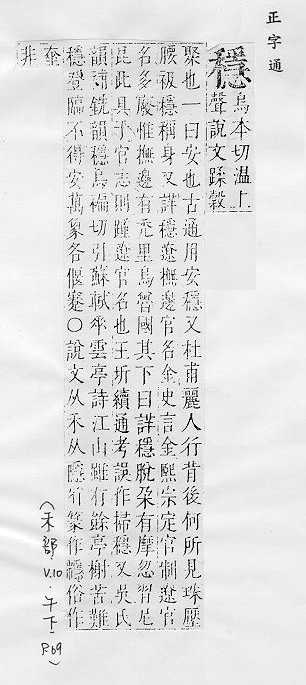 正字通
穩 烏本切溫上
聲說文蹂穀
聚也一曰安也古通用安穩又杜甫麗人行背後何所見珠壓
腰衱穩稱身又詳穩遼撫邊官名金史言金熙宗定官制遼官
名多廢惟撫邊有禿里烏魯國其下曰詳穩脫朶有摩忽習尼
昆此具于官志則踵遼官名也王圻續通考誤作掃穩又吳氏
韻補銑韻穩烏 切引蘇軾華雲亭詩江山雖有餘亭榭苦難
穩登臨不得安萬象各偃蹇〇說文从禾从隱省篆作 俗作
䅧非
(禾部
V.10
午下
P.69)